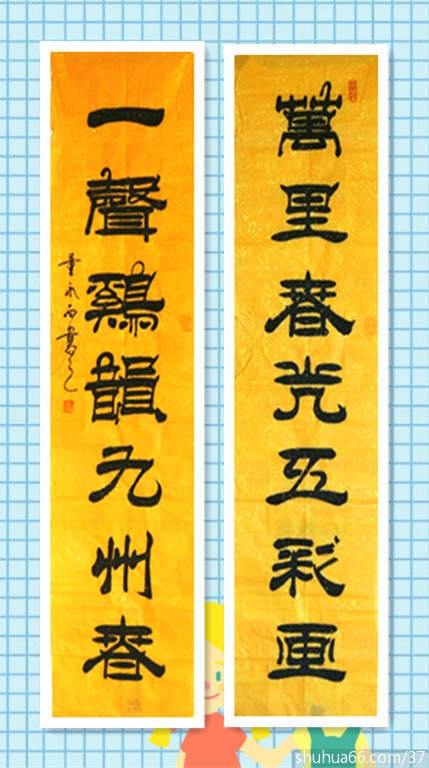 萬里春光五彩画
一聲鷄韻九州春
shuhua66.com/37